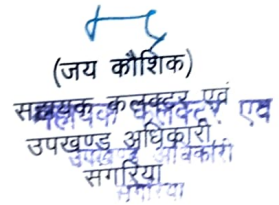 (जय कौशिक)
सहायक कलक्टर एवं
उपखण्ड अधिकारी,
सगरिया
सहायक कलक्टर एवं
उपखण्ड अधिकारी
सगरिया